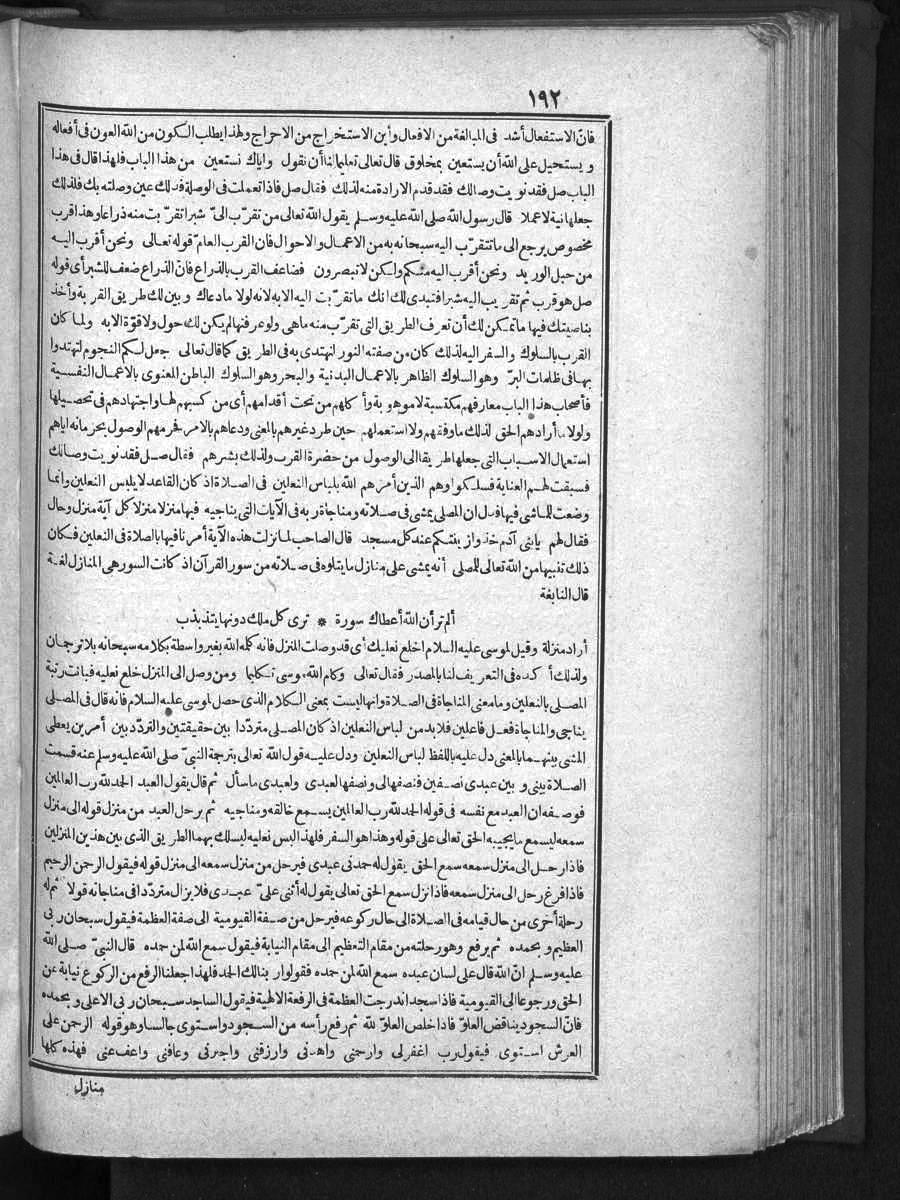 ١٩٢
فانّ الاستفعال أشد فى المبالغة من الافعال وأين الاستخراج من الاحراج ولهذا يطلب الكون من الله العون فى أفعاله
ويستحيل على الله أن يستعين بمخلوق قال تعالى تعليما لنا أن نقول واياك نستعين من هذا الباب فلهذا قال فى هذا
الباب صل فقد نويت وصالك فقد قدم الارادة منه لذلك فقال صل فاذا تعملت فى الوصلة فذلك عين وصلته بك فلذلك
جعلها نية لا عملا قال رسول الله صلى الله عليه وسلم يقول الله تعالى من تقرّب الىّ شبرا تقرّبت منه ذراعا وهذا قرب
مخصوص يرجع الى ما تتقرّب اليه سبحانه به من الاعمال والاحوال فان القرب العام قوله تعالى ونحن أقرب اليه
من حبل الوريد ونحن أقرب اليه منكم ولكن لا تبصرون فضاعف القرب بالذراع فانّ الذراع ضعف للشبر أى قوله
صل هو قرب ثم تقريب اليه شبرا فتبدى لك انك ما تقرّبت اليه الا به لانه لولا ما دعاك وبين لك طريق القربة وأخذ
بناصيتك فيها ما تمكن لك أن تعرف الطريق التى تقرّب منه ما هى ولو عرفتها لم يكن لك حول ولا قوّة الا به ولما كان
القرب بالسلوك والسفر اليه لذلك كان من صفته النور لنهتدى به فى الطريق كما قال تعالى جعل لكم النجوم لتهتدوا
بها فى ظلمات البرّ وهو السلوك الظاهر بالاعمال البدنية والبحر وهو السلوك الباطن المعنوى بالاعمال النفسية
فأصحاب هذا الباب معارفهم مكتسبة لا موهوبة وأكلهم من تحت أقدامهم أى من كسبهم لها واجتهادهم فى تحصيلها
ولولا ما أرادهم الحق لذلك ما وفقهم ولا استعملهم حين طرد غيرهم بالمعنى ودعاهم بالامر فحرمهم الوصول بحرمانه اياهم
استعمال الاسباب التى جعلها طريقا الى الوصول من حضرة القرب ولذلك بشرهم فقال صل فقد نويت وصالك
فسبقت لهم العناية فسلكوا وهم الذين أمرهم الله بلباس النعلين فى الصلاة اذ كان القاعد لا يلبس النعلين وانما
وضعت للماشى فيها فدل ان المصلى يمشى فى صلاته ومناجاة ربه فى الآيات التى يناجيه فيها منزلا منزلا كل آية منزل وحال
فقال لهم يا بنى آدم خذوا زينتكم عند كل مسجد قال الصاحب لما نزلت هذه الآية أمرنا فيها بالصلاة فى النعلين فكان
ذلك تنبيها من الله تعالى للمصلى أنه يمشى على منازل ما يتلوه فى صلاته من سور القرآن اذ كانت السور هى المنازل لغة
قال النابغة
ألم تر أن الله أعطاك سورة * ترى كل ملك دونها يتذبذب
أراد منزلة وقيل لموسى عليه السلام اخلع نعليك أى قد وصلت المنزل فانه كلمه الله بغير واسطة بكلامه سبحانه بلا ترجمان
ولذلك أكده فى التعريف لنا بالمصدر فقال تعالى وكلم الله موسى تكليما ومن وصل الى المنزل خلع نعليه فبانت رتبة
المصلى بالنعلين وما معنى المناجاة فى الصلاة وانها ليست بمعنى الكلام الذى حصل لموسى عليه السلام فانه قال فى المصلى
يناجى والمناجاة فعل فاعلين فلا بد من لباس النعلين اذ كان المصلى متردّدا بين حقيقتين والتردّد بين أمرين يعطى
المشى بينهما بالمعنى دل عليه باللفظ لباس النعلين ودل عليه قول الله تعالى بترجمة النبىّ صلى الله عليه وسلم عنه قسمت
الصلاة بينى وبين عبدى نصفين فنصفها لى ونصفها لعبدى ولعبدى ما سأل ثم قال يقول العبد الحمد لله رب العالمين
فوصفه ان العبد مع نفسه فى قوله الحمد لله رب العالمين يسمع خالقه ومناجيه ثم يرحل العبد من منزل قوله الى منزل
سمعه ليسمع ما يجيبه الحق تعالى على قوله وهذا هو السفر فلهذا لبس نعليه ليسلك بهما الطريق الذى بين هذين المنزلين
فاذا رحل الى منزل سمعه سمع الحق يقول له حمدنى عبدى فيرحل من منزل سمعه الى منزل قوله فيقول الرحمن الرحيم
فاذا فرغ رحل الى منزل سمعه فاذا نزل سمع الحق تعالى يقول له أثنى علىّ عبدى فلا يزال متردّدا فى مناجاته قولا ثم له
رحلة أخرى من حال قيامه فى الصلاة الى حال ركوعه فيرحل من صفة القيومية الى صفة العظمة فيقول سبحان ربى
العظيم وبحمده ثم يرفع وهو رحلته من مقام التعظيم الى مقام النيابة فيقول سمع الله لمن حمده قال النبىّ صلى الله
عليه وسلم انّ الله قال على لسان عبده سمع الله لمن حمده فقولوا ربنا لك الحمد فلهذا جعلنا الرفع من الركوع نيابة عن
الحق ورجوعا الى القيومية فاذا سجد اندرجت العظمة فى الرفعة الالهية فيقول الساجد سبحان ربى الاعلى وبحمده
فانّ السجود يناقض العلوّ فاذا خلص العلوّ لله ثم رفع رأسه من السجود واستوى جالسا وهو قوله الرحمن على
العرش استوى فيقول رب اغفر لى وارحمنى واهدنى وارزقنى واجبرنى وعافنى واعف عنى فهذه كلها
منازل